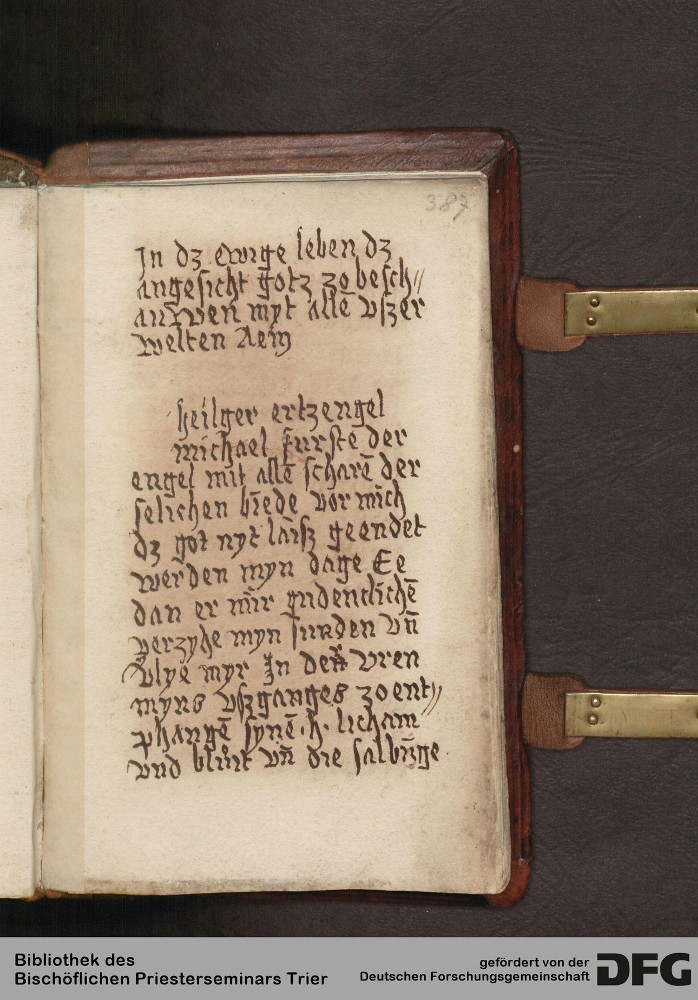 387
In dz ewige leben dz
angesicht gotz zo besch〃
auwen myt allē vszer
welten Aem
heilger ertzengel
michael furstē der
engel mit allē scharē der
selichen biede vor mich
dz got nyt laisz geendet
werden myn dage Ee
dan er mir gndenclichē
verzyhe myn sunden vn̄
vlye myr In den vren
myns vszganges zo ent〃
phangē synē .h. licham
vnd bluit vn̄ die salbūge
Bibliothek des
Bischöflichen Priesterseminars Trier
gefördert von der
Deutschen Forschungsgemeinschaft DFG